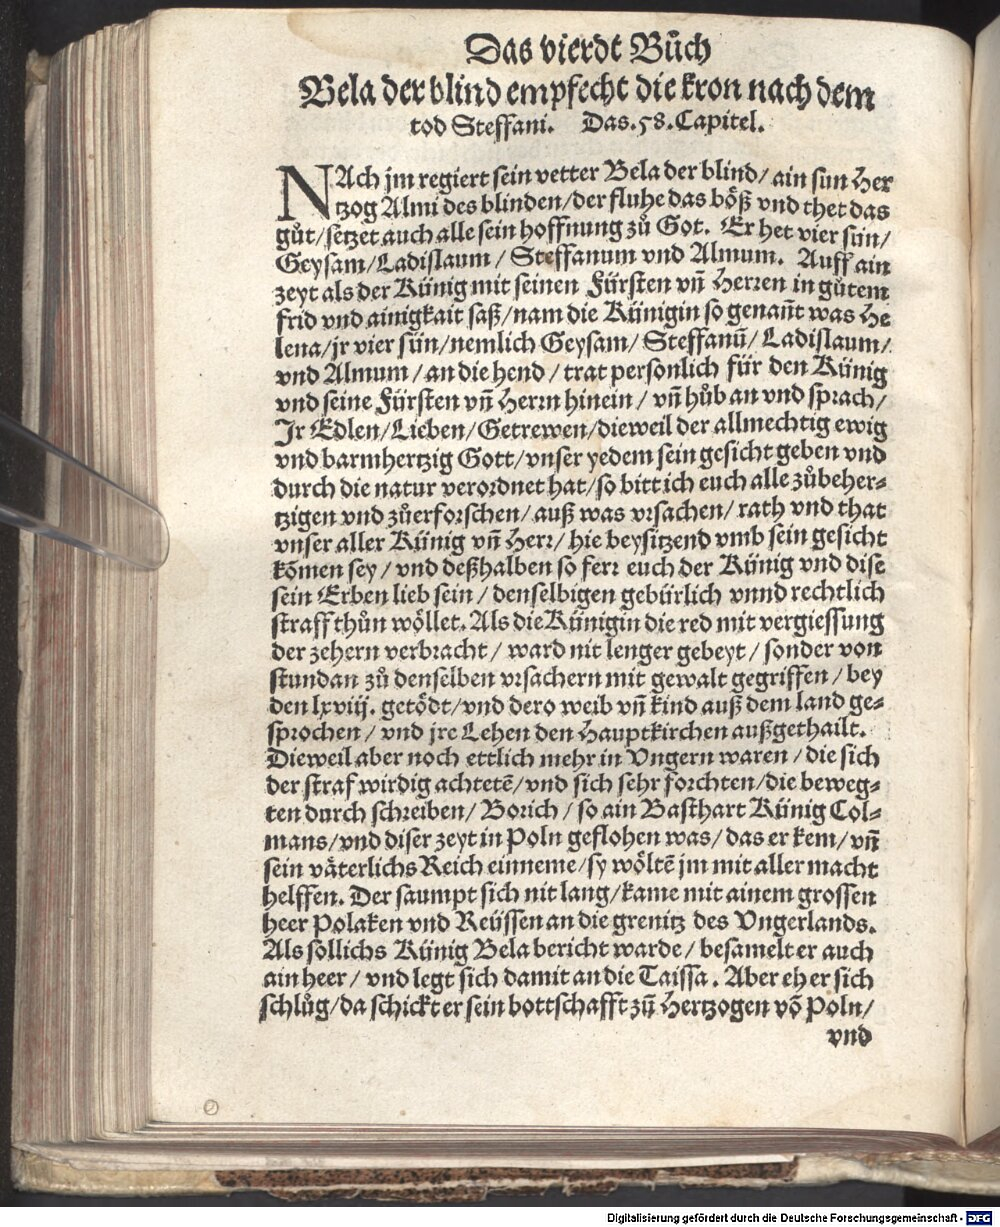 Das vierdt Bůch
Bela der blind empfecht die kron nach dem
tod Steffani. Das.58.Capitel.
NAch jm regiert sein vetter Bela der blind/ ain sun Her
tzog Almi des blinden/der fluhe das böß vnd thet das
gůt/setzet auch alle sein hoffnung zů Got. Er het vier sün/
Geysam/Ladislaum/ Steffanum vnd Almum. Auff ain
zeyt als der Künig mit seinen Fürsten vñ Herren in gůtem
frid vnd ainigkait saß/nam die Künigin so genañt was He
lena/jr vier sün/nemlich Geysam/ Steffanū/ Ladislaum/
vnd Almum/an die hend/trat persönlich für den Künig
vnd seine Fürsten vñ Herrn hinein/ vñ hůb an vnd sprach/
Jr Edlen/Lieben/Getrewen/dieweil der allmechtig ewig
vnd barmhertzig Gott/vnser yedem sein gesicht geben vnd
durch die natur verordnet hat/so bitt ich euch alle zůbeher-
tzigen vnd zůerforschen/auß was vrsachen/rath vnd that
vnser aller Künig vñ Herr/hie beysitzend vmb sein gesicht
kōmen sey/vnd deßhalben so ferr euch der Künig vnd dise
sein Erben lieb sein/denselbigen gebürlich vnnd rechtlich
straff thůn wöllet. Als die Künigin die red mit vergiessung
der zehern verbracht/ward nit lenger gebeyt/sonder von
stundan zů denselben vrsachern mit gewalt gegriffen/bey
den lxviij. getödt/vnd dero weib vñ kind auß dem land ge-
sprochen/vnd jre Lehen den Hauptkirchen außgethailt.
Dieweil aber noch ettlich mehr in Vngern waren/die sich
der straf wirdig achtetē/vnd sich sehr forchten/die beweg-
ten durch schreiben/Borich/so ain Basthart Künig Col-
mans/vnd diser zeyt in Poln geflohen was/das er kem/vñ
sein väterlichs Reich einneme/sy wöltē jm mit aller macht
helffen. Der saumpt sich nit lang/kame mit ainem grossen
heer Polaken vnd Reüssen an die grenitz des Vngerlands.
Als söllichs Künig Bela bericht warde/besamelt er auch
ain heer/vnd legt sich damit an die Taissa. Aber eh er sich
schlůg/da schickt er sein bottschafft zů Hertzogen vō Poln/
vnd
Digitalisierung gefördert durch die Deutsche Forschungsgemeinschaft - DFG